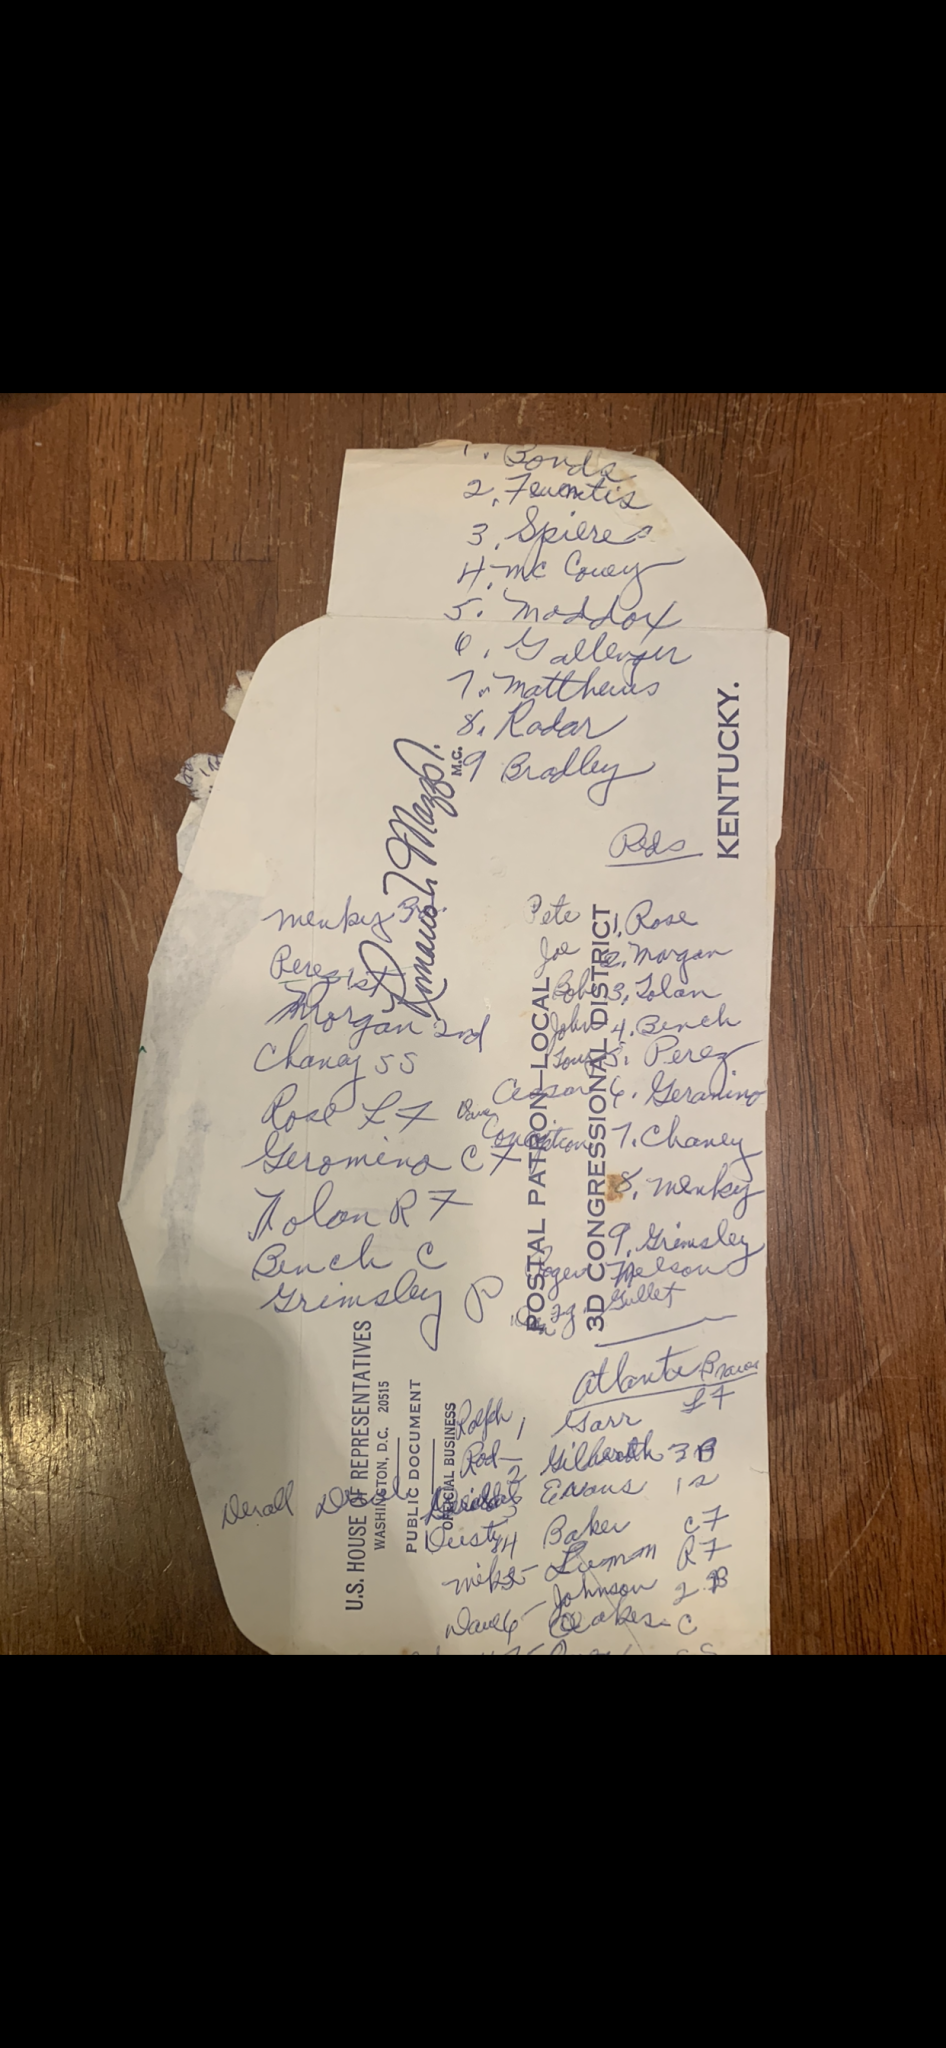 1. Bonds
2. Feuentis
3. Spieres
4. Mc Covey
5. Maddox
6. Gallenger
7. Matthews
8. Radar
9 Bradley
Reds
Pete 1. Rose
Joe 2. Morgan
Bobe 3. Tolan
John 4. Bench
5. Perez
Ceasar 6. Geranino
Dave Conception 7. Chaney
8. Menky
9. Grimsley
Roger Nelson
Don Gullet
Menky 3rd
Perez 1st
Morgan 2nd
Chaney SS
Rose LF
Geromino CF
Tolan RF
Bench C
Grimsley P
Atlanta Braves
Ralph 1 Garr LF
Rod - 2 Gilbreath 3B
3 Evans 1
Dusty 4 Baker CF
Mike 5 - Lum RF
Johnson 2B
Dave 6 - Oakes - C
Derall
KENTUCKY.
POSTAL PATRON—LOCAL
3D CONGRESSIONAL DISTRICT
Romano L. Mazzoli
M.C.
U.S. HOUSE OF REPRESENTATIVES
WASHINGTON, D.C. 20515
PUBLIC DOCUMENT
OFFICIAL BUSINESS